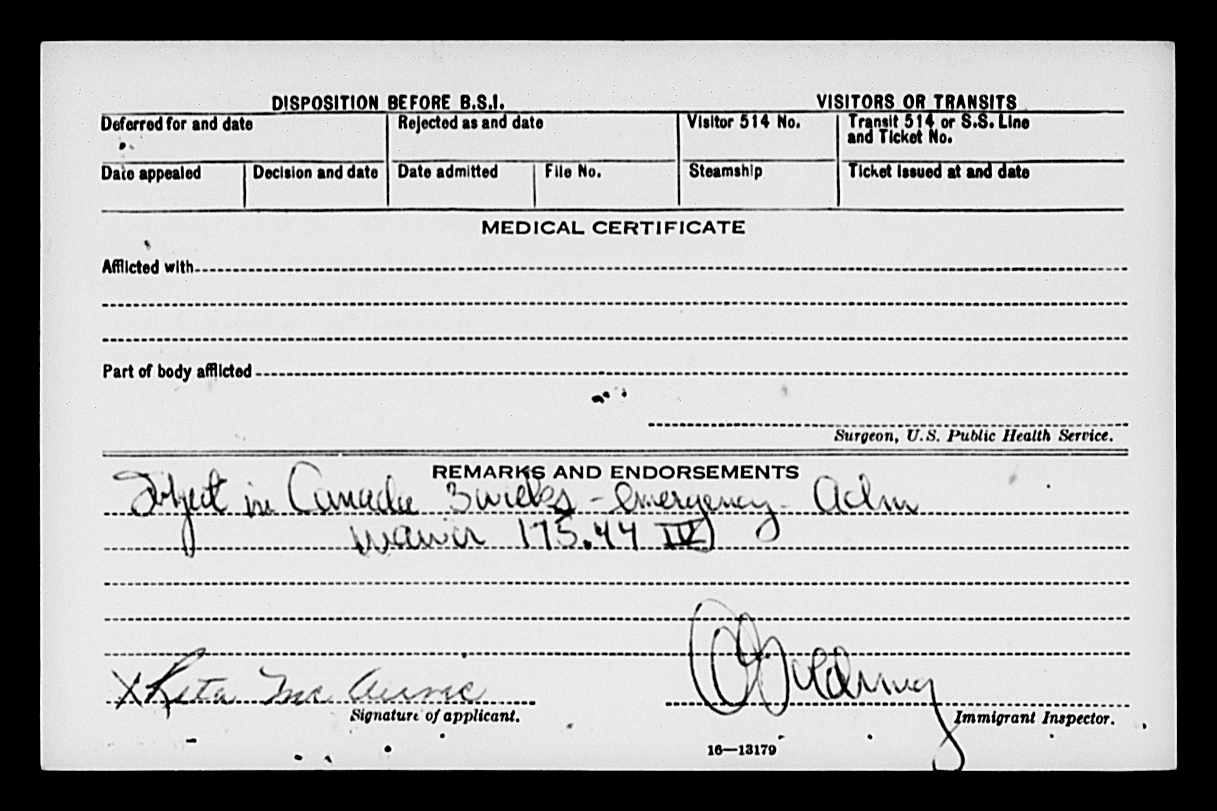 DISPOSITION BEFORE B.S.I. VISITORS OR TRANSITS
Deferred for and date Rejected as and date Visitor 514 No. Transit 514 or S.S. Line
and Ticket No.
Date appealed Decision and date Date admitted File No. Steamship Ticket issued at and date
MEDICAL CERTIFICATE
Afflicted with
Part of body afflicted
Surgeon, U.S. Public Health Service.
REMARKS AND ENDORSEMENTS
Subject in Canada 3 weeks - emergency. Adm
waiver 175.44 IV)
X Rita Mc
Signature of applicant.
Immigrant Inspector.
16—13179